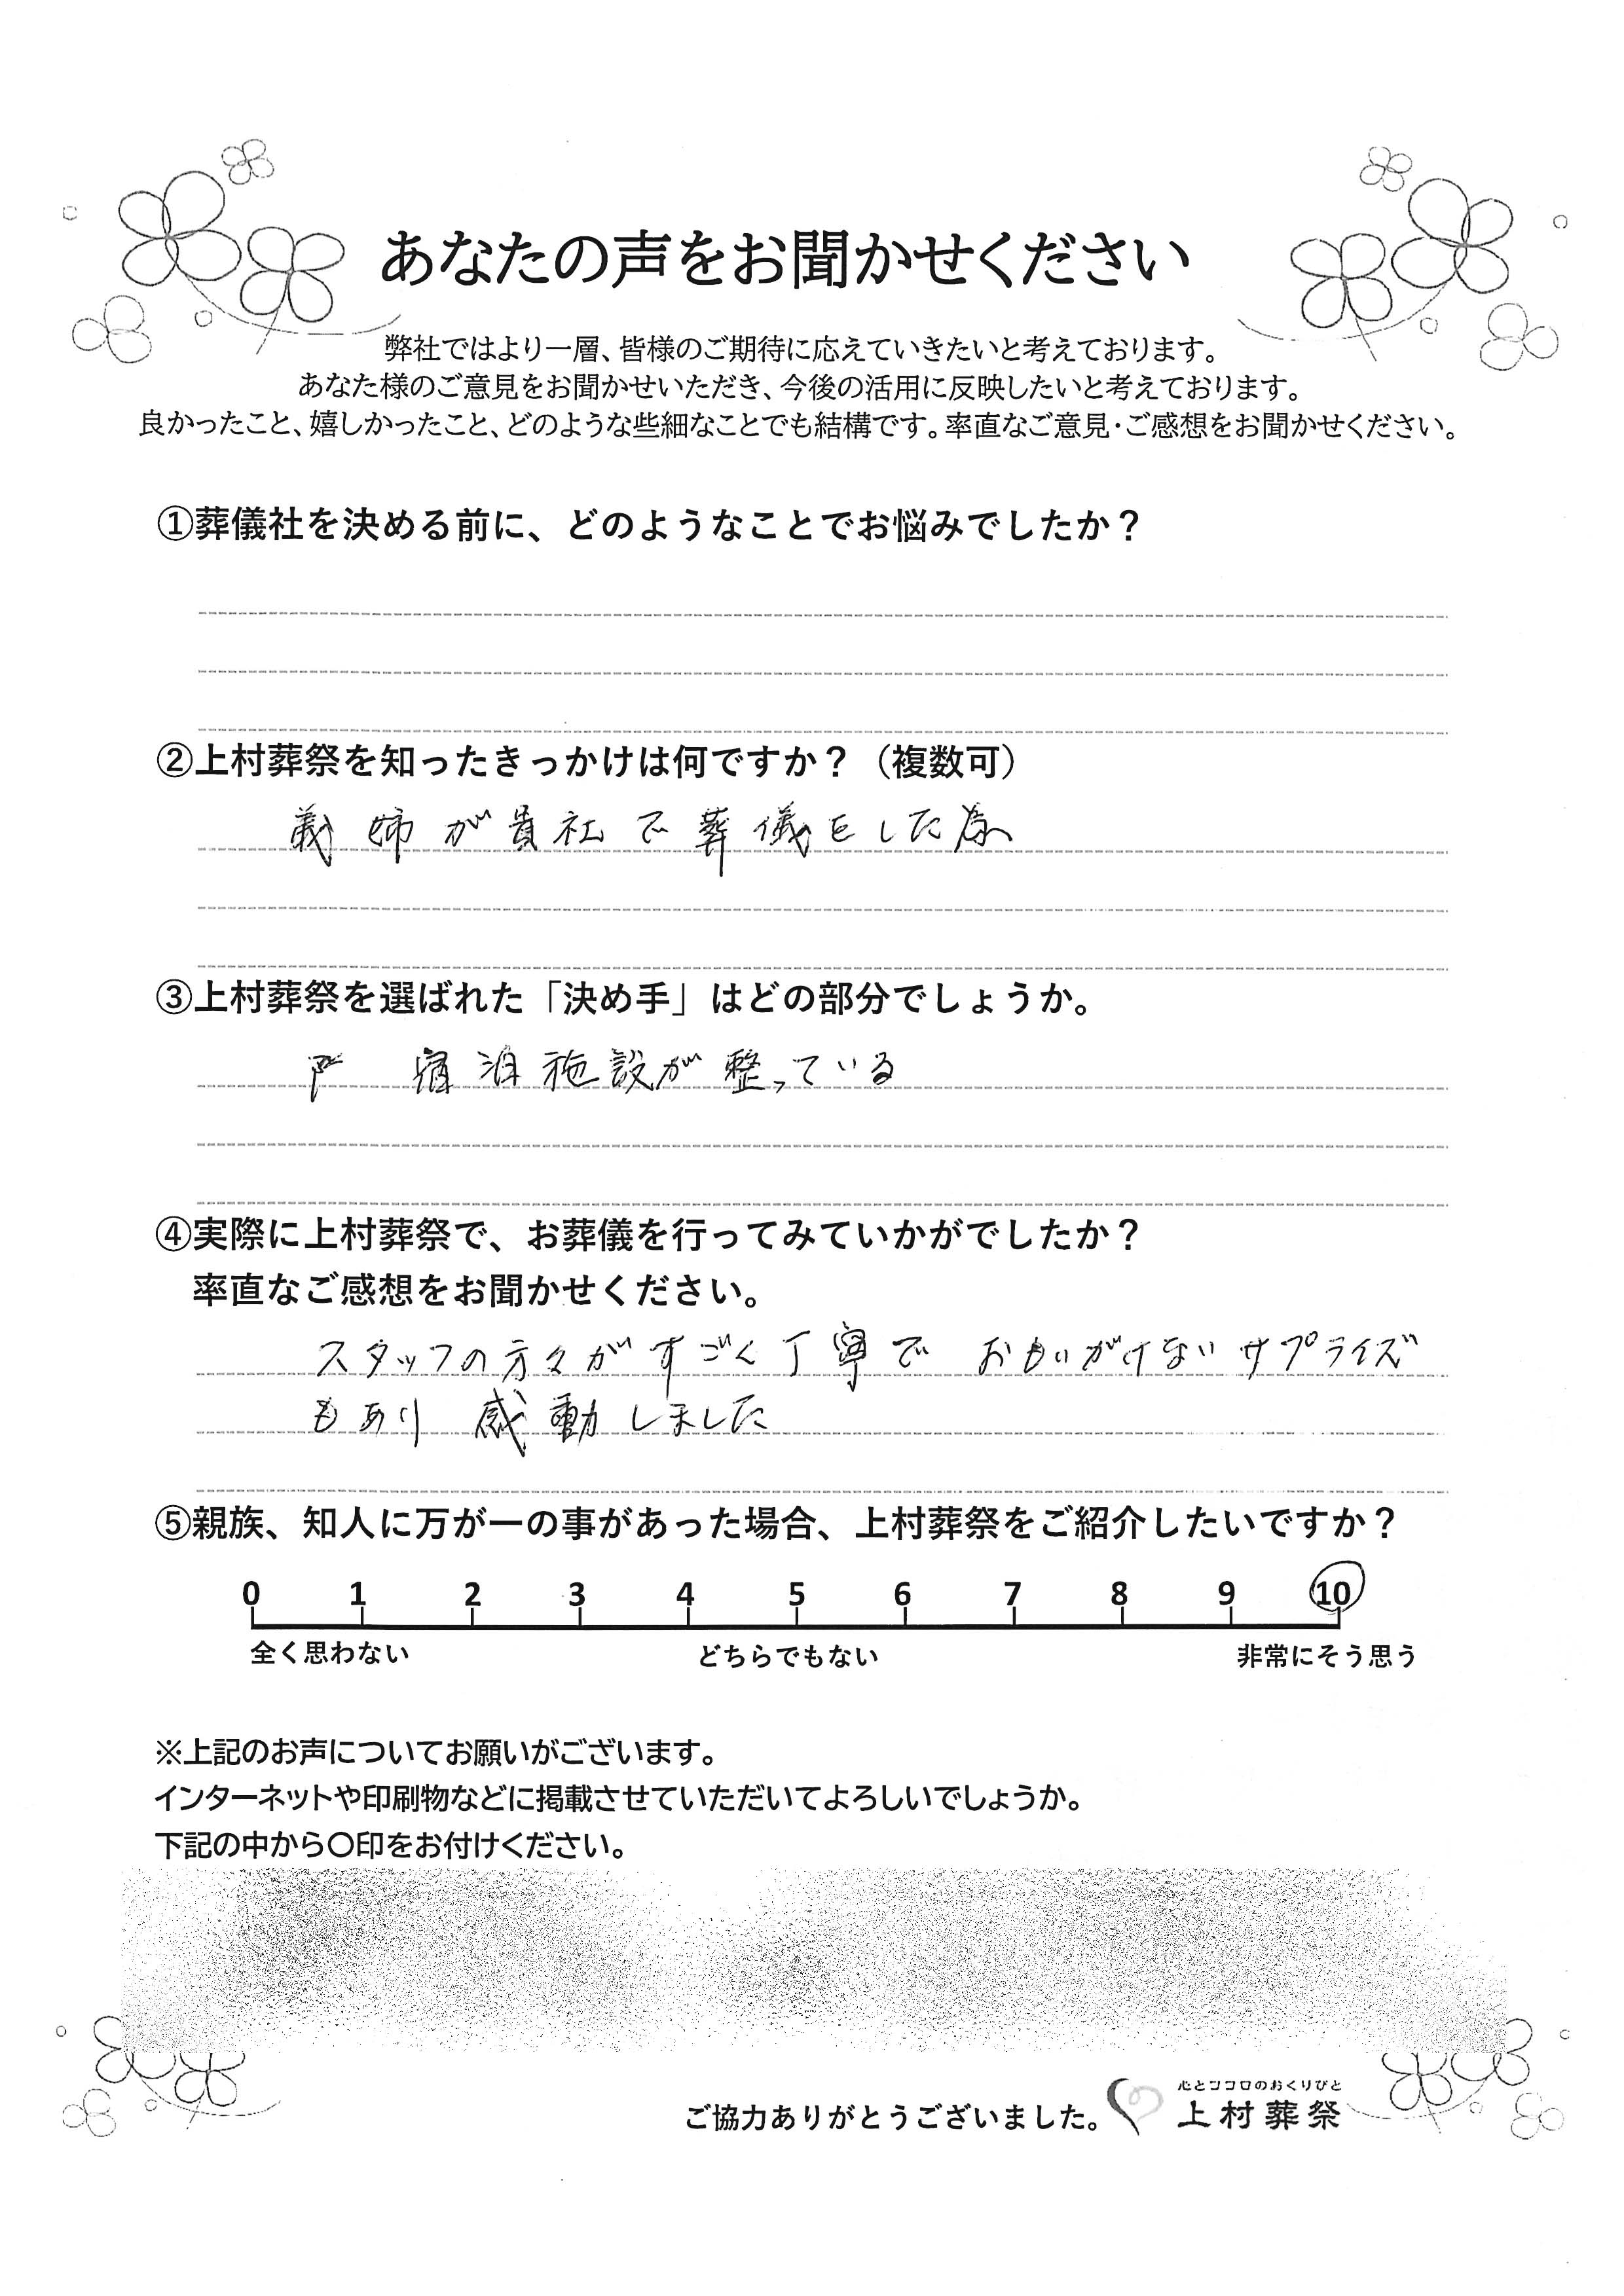 あなたの声をお聞かせください
弊社ではより一層、皆様のご期待に応えていきたいと考えております。
あなた様のご意見をお聞かせいただき、今後の活用に反映したいと考えております。
良かったこと、嬉しかったこと、どのような些細なことでも結構です。率直なご意見・ご感想をお聞かせください。
①葬儀社を決める前に、どのようなことでお悩みでしたか？
②上村葬祭を知ったきっかけは何ですか？（複数可）
義姉が貴社で葬儀をした為
③上村葬祭を選ばれた「決め手」はどの部分でしょうか。
宿泊施設が整っている
④実際に上村葬祭で、お葬儀を行ってみていかがでしたか？
率直なご感想をお聞かせください。
スタッフの方々がすごく丁寧で おもいがけないサプライズ
もあり 感動しました
⑤親族、知人に万が一の事があった場合、上村葬祭をご紹介したいですか？
0 1 2 3 4 5 6 7 8 9 10
全く思わない どちらでもない 非常にそう思う
※上記のお声についてお願いがございます。
インターネットや印刷物などに掲載させていただいてよろしいでしょうか。
下記の中から〇印をお付けください。
心とココロのおくりびと
ご協力ありがとうございました。 上村葬祭